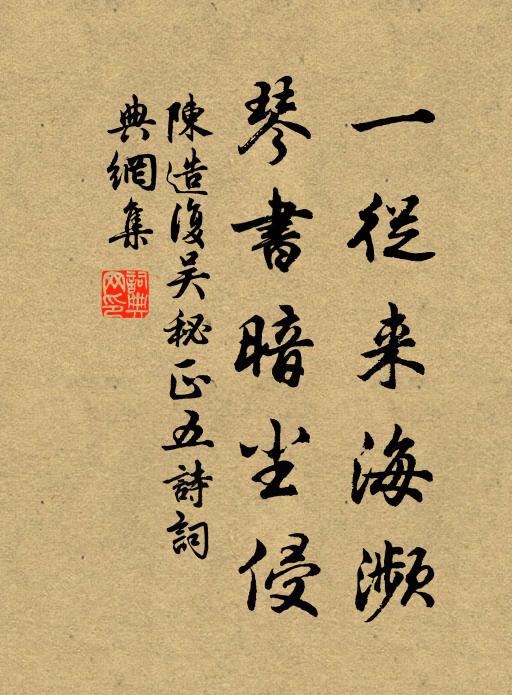 一從来海瀕
琴書暗尘侵
陳造復吴秘正五詩詞
典網集
詞典
网印